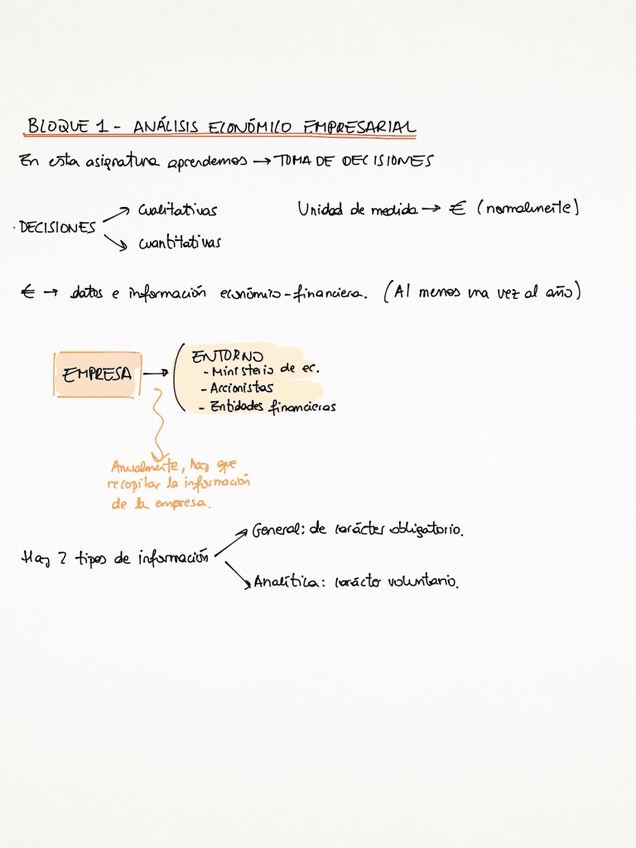 BLOQUE 1 - ANÁLISIS ECONÓMICO EMPRESARIAL
En esta asignatura aprendemos → TOMA DE DECISIONES
cualitativas
Unidad de medida → € (normalmente)
· DECISIONES
cuantitativas
€ → datos e información económico-financiera. (Al menos una vez al año)
EMPRESA →
ENTORNO
- Ministerio de ec.
- Accionistas
- Entidades financieras
Anualmente, hay que
recopilar la información
de la empresa.
General: de carácter obligatorio.
Hay 2 tipos de información
Analítica: carácter voluntario.